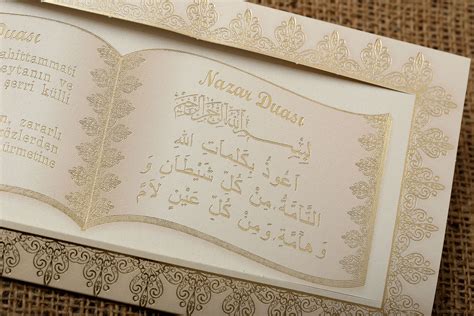 Duası
ahittammati
eytanin ve
şerri külli
n, zararlı
özlerden
ürmetine
Nazar Duası
بِسْمِ اللهِ الرَّحْمٰنِ الرَّحِيمِ
اَعُوذُ بِكَلِمَاتِ اللهِ
التَّامَّةِ مِنْ كُلِّ شَيْطَانٍ وَ
وَ هَامَّةٍ، وَمِنْ كُلِّ عَيْنٍ لَامَّ